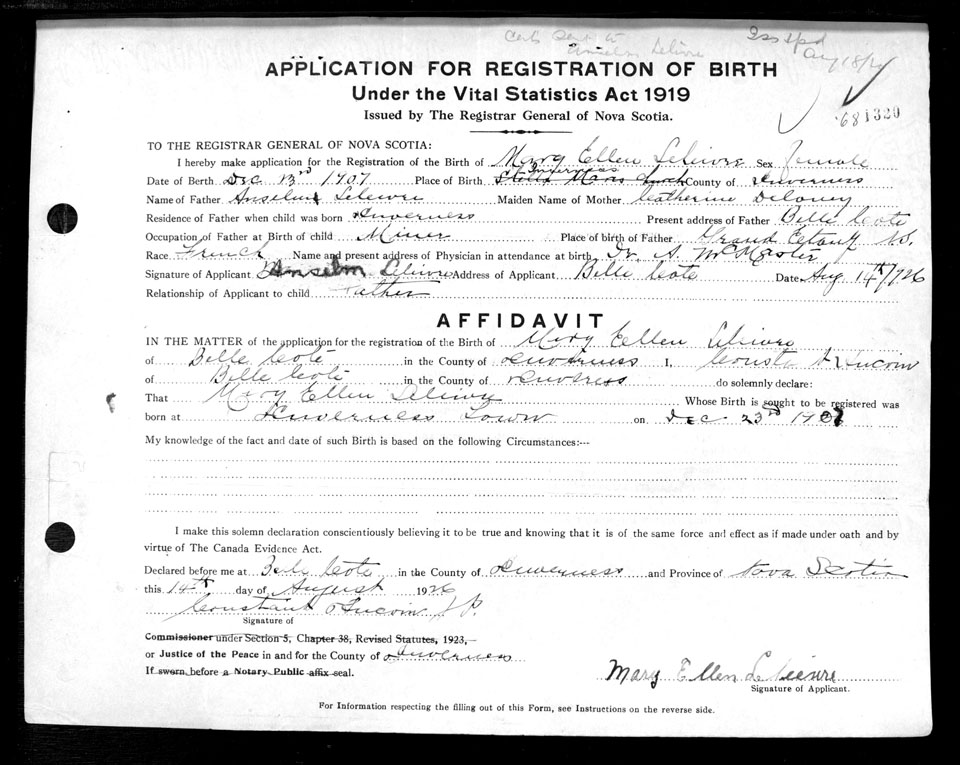 Cert Sent to
Anselm Lelievre
Aug 18/26
APPLICATION FOR REGISTRATION OF BIRTH
Under the Vital Statistics Act 1919
Issued by The Registrar General of Nova Scotia.
681320
TO THE REGISTRAR GENERAL OF NOVA SCOTIA:
I hereby make application for the Registration of the Birth of Mary Ellen Lelievre Sex female
Inverness
Date of Berth Dec 23rd 1907 Place of Birth Stella Maris County of Inverness
Name of Father Anselm Lelievre Maiden Name of Mother Catherine Deloney
Residence of Father when child was born Inverness Present address of Father Belle Cote
Occupation of Father at Birth of child Miner Place of birth of Father Grand Etang NS.
Race French Name and present address of Physician in attendance at birth Dr. A. McMaster
Signature of Applicant Anselm Lelievre Address of Applicant Belle Cote Date Aug 14th/1926
Relationship of Applicant to child Father
AFFIDAVIT
IN THE MATTER of the application for the registration of the Birth of Mary Ellen Lelievre
of Belle Coté in the County of Inverness I,
of Belle Coté in the County of Inverness do solemnly declare:
That Mary Ellen Whose Birth is sought to be registered was
born at Inverness Town on Dec 23rd 1907
My knowledge of the fact and date of such Birth is based on the following Circumstances:—
I make this solemn declaration conscientiously believing it to be true and knowing that it is of the same force and effect as if made under oath and by
virtue of The Canada Evidence Act.
Declared before me at Belle Cote in the County of Inverness and Province of Nova Scotia
this 14th day of August 1926
Constant J P.
Signature of
Commissioner under Section 5, Chapter 38, Revised Statutes, 1923,
or Justice of the Peace in and for the County of Inverness
If sworn before a Notary Public affix seal.
Mary Ellen Lelievre
Signature of Applicant.
For Information respecting the filling out of this Form, see Instructions on the reverse side.